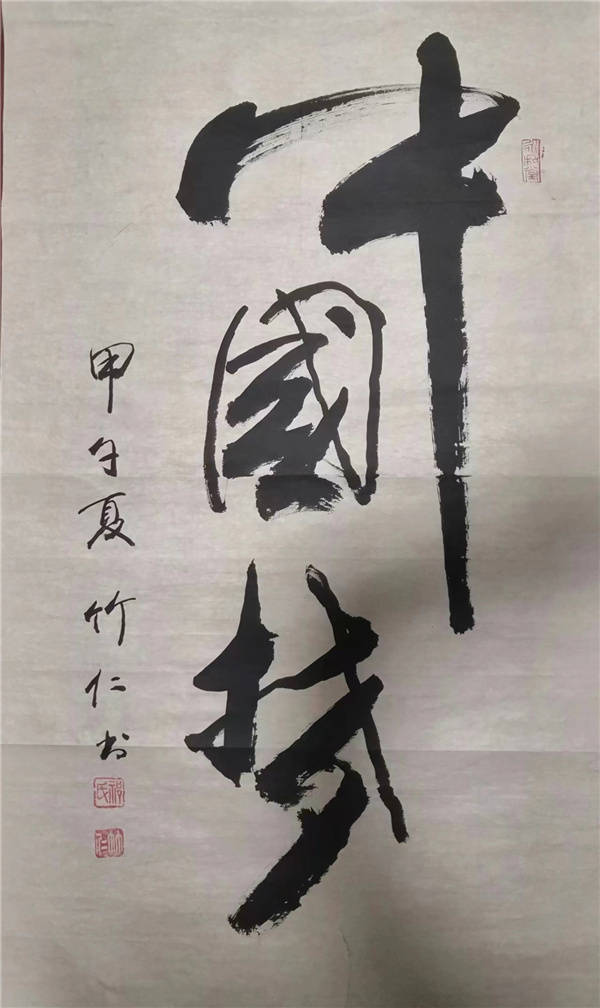 中國梦
甲午夏竹仁书